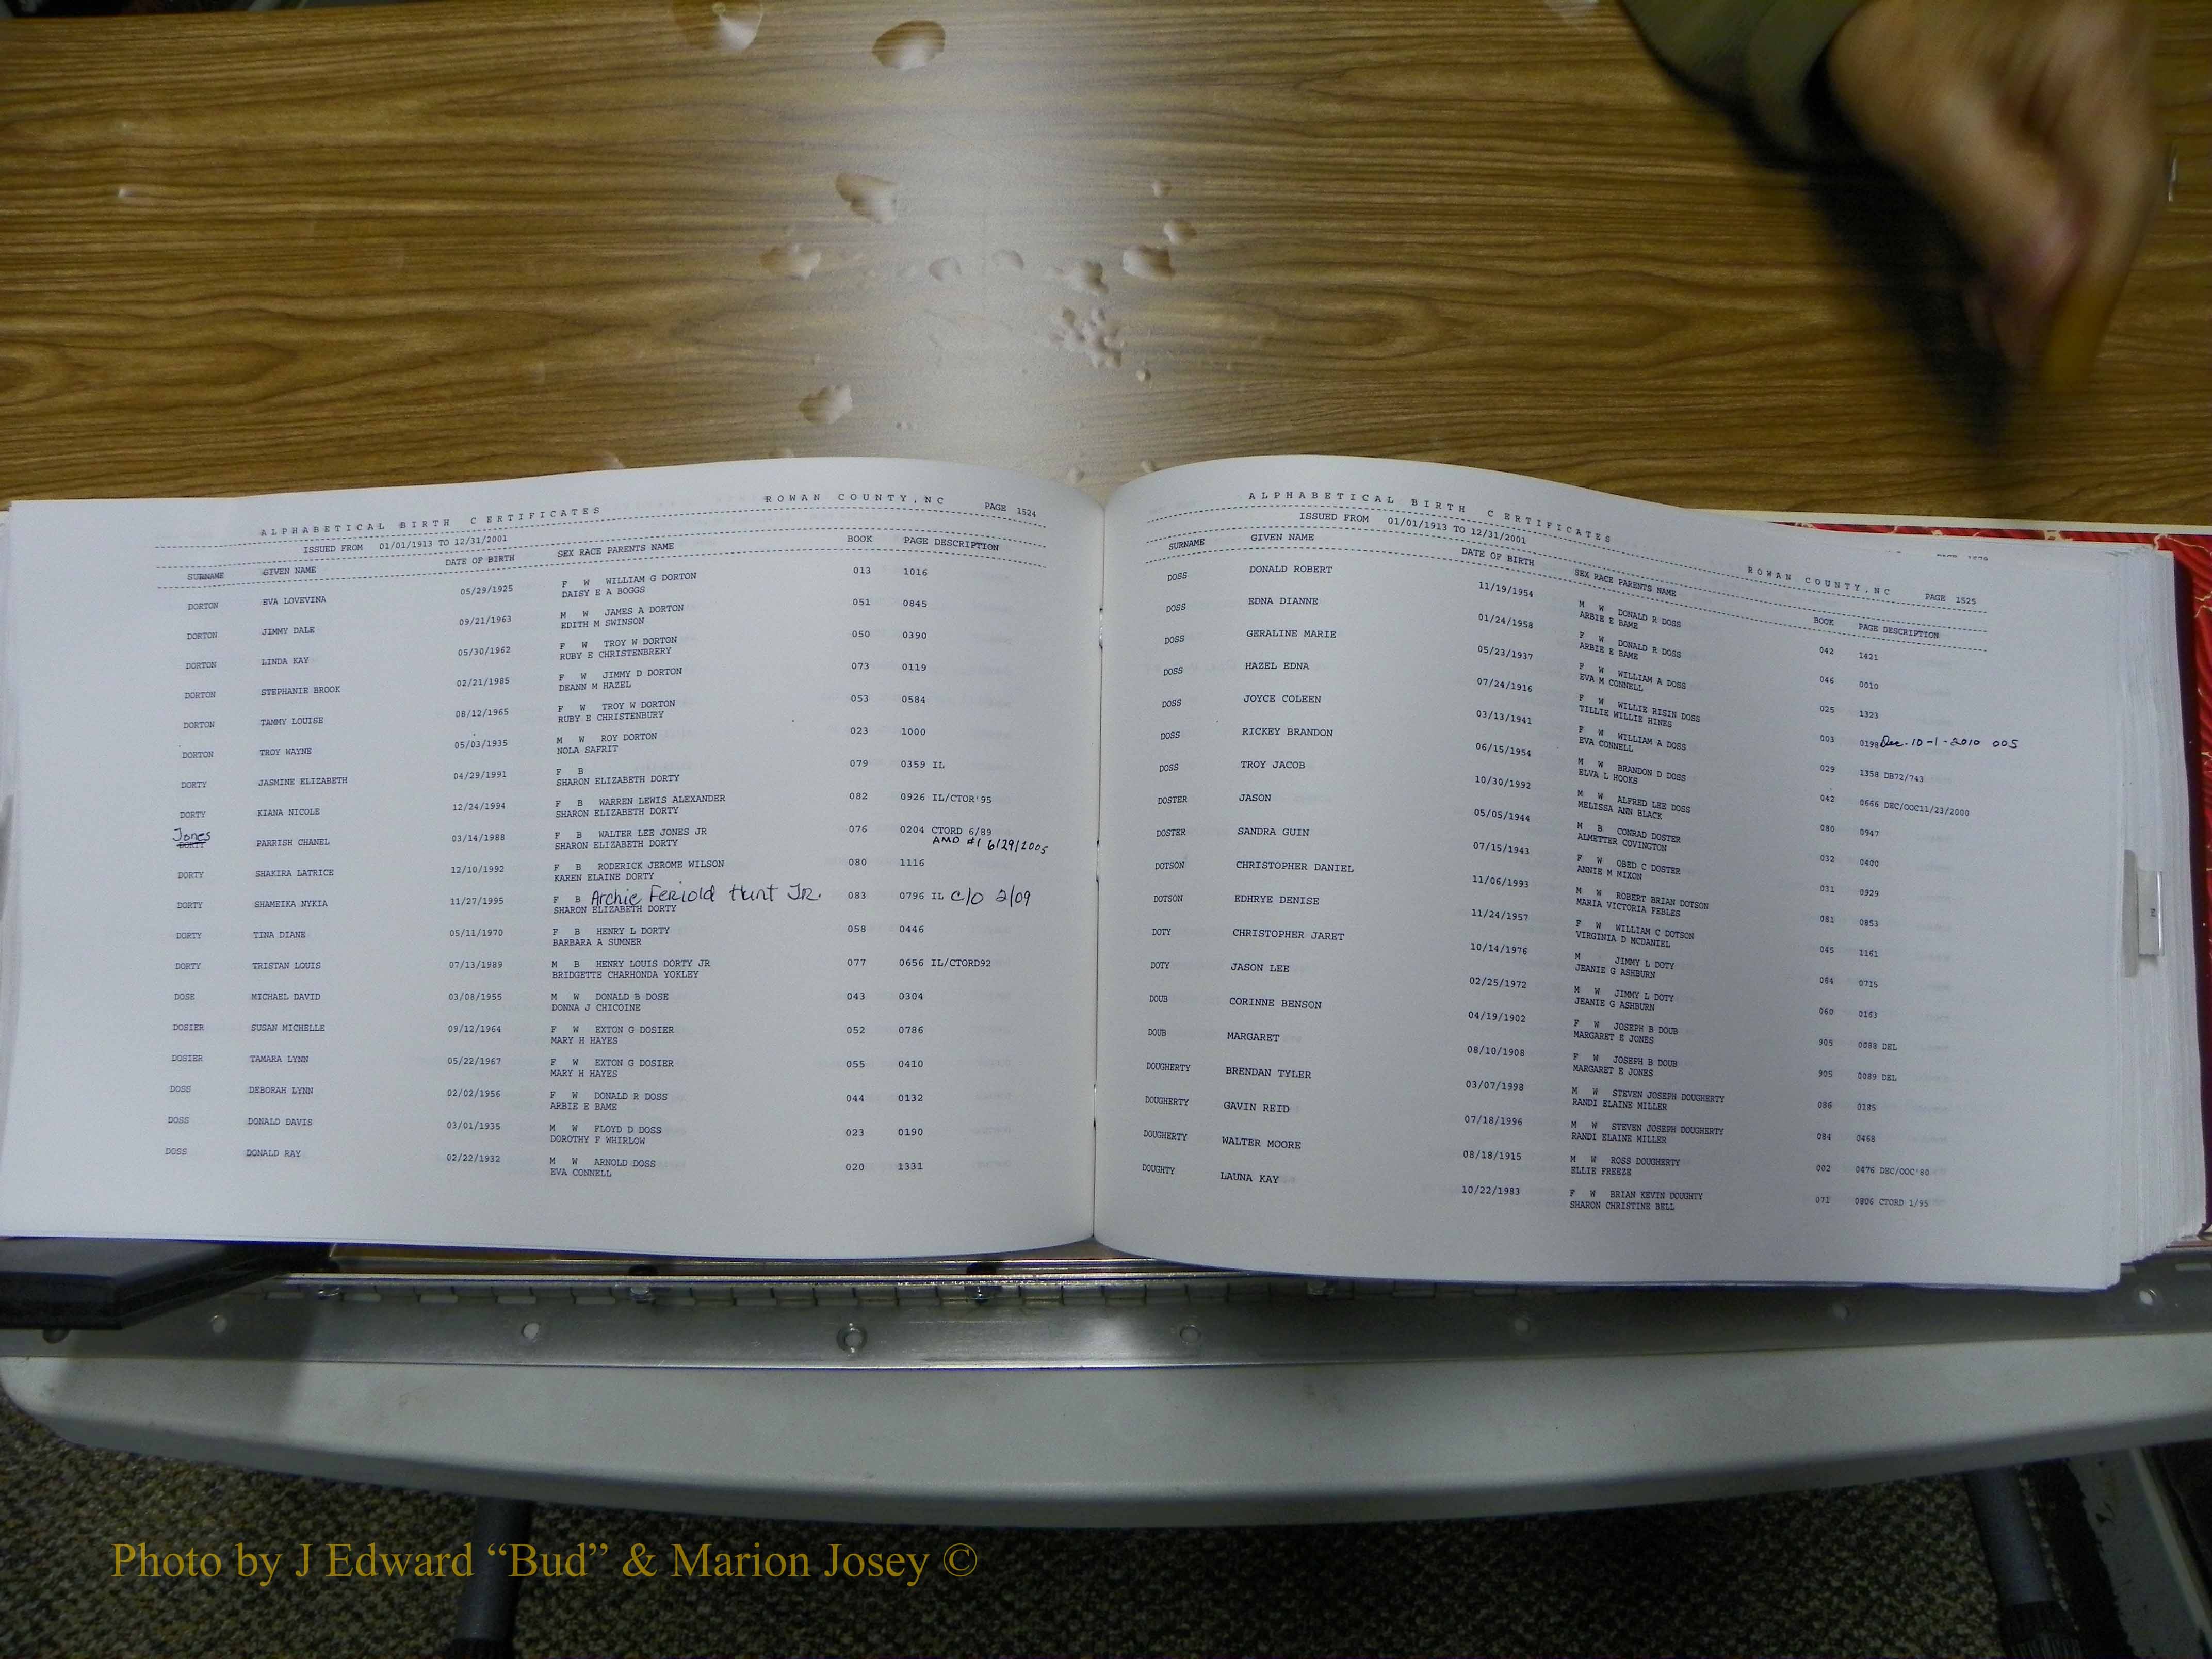 ALPHABETICAL BIRTH CERTIFICATES ROWAN COUNTY, NC PAGE 1524
ISSUED FROM 01/01/1913 TO 12/31/2001
SURNAME GIVEN NAME DATE OF BIRTH SEX RACE PARENTS NAME BOOK PAGE DESCRIPTION
DORTON EVA LOVEVINA 05/29/1925 F W WILLIAM G DORTON 013 1016
DAISY E A BOGGS
DORTON JIMMY DALE 09/21/1963 M W JAMES A DORTON 051 0845
EDITH M SWINSON
DORTON LINDA KAY 05/30/1962 F W TROY W DORTON 050 0390
RUBY E CHRISTENBRERY
DORTON STEPHANIE BROOK 02/21/1985 F W JIMMY D DORTON 073 0119
DEANN M HAZEL
DORTON TAMMY LOUISE 08/12/1965 F W TROY W DORTON 053 0584
RUBY E CHRISTENBURY
DORTON TROY WAYNE 05/03/1935 M W ROY DORTON 023 1000
NOLA SAFRIT
DORTY JASMINE ELIZABETH 04/29/1991 F B 079 0359 IL
SHARON ELIZABETH DORTY
DORTY KIANA NICOLE 12/24/1994 F B WARREN LEWIS ALEXANDER 082 0926 IL/CTOR'95
SHARON ELIZABETH DORTY
Jones
DORTY PARRISH CHANEL 03/14/1988 F B WALTER LEE JONES JR 076 0204 CTORD 6/89
SHARON ELIZABETH DORTY AMD #1 6/29/2005
DORTY SHAKIRA LATRICE 12/10/1992 F B RODERICK JEROME WILSON 080 1116
KAREN ELAINE DORTY
DORTY SHAMEIKA NYKIA 11/27/1995 F B Archie Feriold Hunt Jr. 083 0796 IL C/O 2/09
SHARON ELIZABETH DORTY
DORTY TINA DIANE 05/11/1970 F B HENRY L DORTY 058 0446
BARBARA A SUMNER
DORTY TRISTAN LOUIS 07/13/1989 M B HENRY LOUIS DORTY JR 077 0656 IL/CTORD92
BRIDGETTE CHARHONDA YOKLEY
DOSE MICHAEL DAVID 03/08/1955 M W DONALD B DOSE 043 0304
DONNA J CHICOINE
DOSIER SUSAN MICHELLE 09/12/1964 F W EXTON G DOSIER 052 0786
MARY H HAYES
DOSIER TAMARA LYNN 05/22/1967 F W EXTON G DOSIER 055 0410
MARY H HAYES
DOSS DEBORAH LYNN 02/02/1956 F W DONALD R DOSS 044 0132
ARBIE E BAME
DOSS DONALD DAVIS 03/01/1935 M W FLOYD D DOSS 023 0190
DOROTHY F WHIRLOW
DOSS DONALD RAY 02/22/1932 M W ARNOLD DOSS 020 1331
EVA CONNELL
ALPHABETICAL BIRTH CERTIFICATES ROWAN COUNTY, NC PAGE 1525
ISSUED FROM 01/01/1913 TO 12/31/2001
SURNAME GIVEN NAME DATE OF BIRTH SEX RACE PARENTS NAME BOOK PAGE DESCRIPTION
DOSS DONALD ROBERT 11/19/1954 M W DONALD R DOSS 042 1421
ARBIE E BAME
DOSS EDNA DIANNE 01/24/1958 F W DONALD R DOSS 046 0010
ARBIE E BAME
DOSS GERALINE MARIE 05/23/1937 F W WILLIAM A DOSS 025 1323
EVA M CONNELL
DOSS HAZEL EDNA 07/24/1916 F W WILLIE RISIN DOSS 003 0198 Dec. 10-1-2010 005
TILLIE WILLIE HINES
DOSS JOYCE COLEEN 03/13/1941 F W WILLIAM A DOSS 029 1358 DB72/743
EVA CONNELL
DOSS RICKEY BRANDON 06/15/1954 M W BRANDON D DOSS 042 0666 DEC/OOC11/23/2000
ELVA L HOOKS
DOSS TROY JACOB 10/30/1992 M W ALFRED LEE DOSS 080 0947
MELISSA ANN BLACK
DOSTER JASON 05/05/1944 M B CONRAD DOSTER 032 0400
ALMETTER COVINGTON
DOSTER SANDRA GUIN 07/15/1943 F W OBED C DOSTER 031 0929
ANNIE M MIXON
DOTSON CHRISTOPHER DANIEL 11/06/1993 M W ROBERT BRIAN DOTSON 081 0853
MARIA VICTORIA FEBLES
DOTSON EDHRYE DENISE 11/24/1957 F W WILLIAM C DOTSON 045 1161
VIRGINIA D MCDANIEL
DOTY CHRISTOPHER JARET 10/14/1976 M JIMMY L DOTY 064 0715
JEANIE G ASHBURN
DOTY JASON LEE 02/25/1972 M W JIMMY L DOTY 060 0163
JEANIE G ASHBURN
DOUB CORINNE BENSON 04/19/1902 F W JOSEPH B DOUB 905 0088 DEL
MARGARET E JONES
DOUB MARGARET 08/10/1908 F W JOSEPH B DOUB 905 0089 DEL
MARGARET E JONES
DOUGHERTY BRENDAN TYLER 03/07/1998 M W STEVEN JOSEPH DOUGHERTY 086 0185
RANDI ELAINE MILLER
DOUGHERTY GAVIN REID 07/18/1996 M W STEVEN JOSEPH DOUGHERTY 084 0468
RANDI ELAINE MILLER
DOUGHERTY WALTER MOORE 08/18/1915 M W ROSS DOUGHERTY 002 0476 DEC/OOC'80
ELLIE FREEZE
DOUGHTY LAUNA KAY 10/22/1983 F W BRIAN KEVIN DOUGHTY 071 0806 CTORD 1/95
SHARON CHRISTINE BELL
Photo by J Edward “Bud” & Marion Josey ©